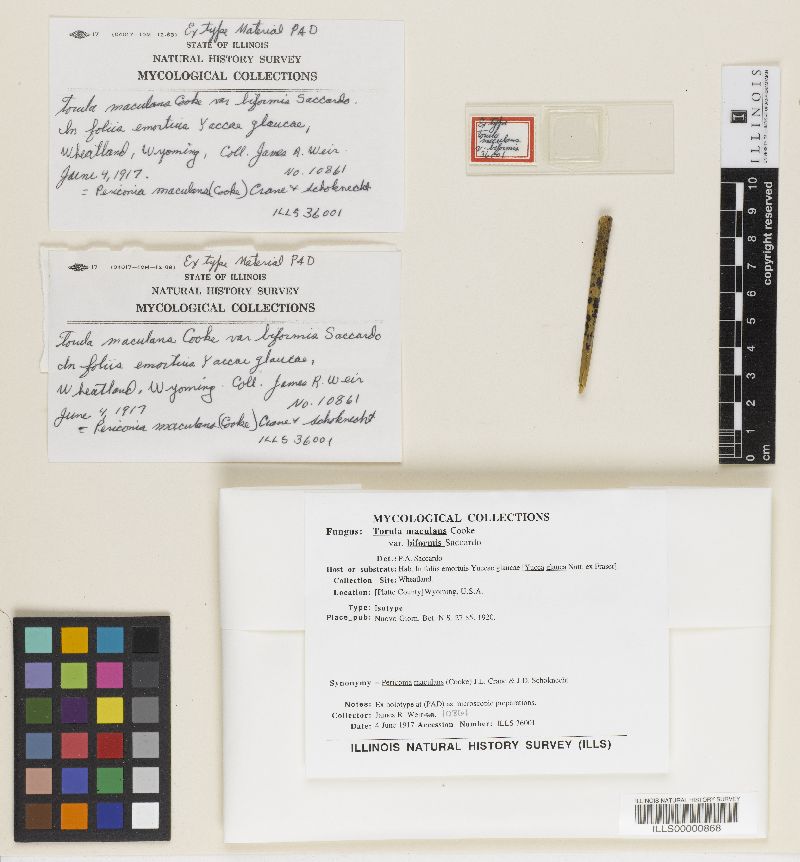 17 (64017-10M-12.68) Ex type Material PAD
STATE OF ILLINOIS
NATURAL HISTORY SURVEY
MYCOLOGICAL COLLECTIONS
Torula maculans Cooke var biformis Saccardo.
In foliis emortuis Yuccae glaucae,
Wheatland, Wyoming, Coll. James R. Weir
June 4, 1917. No. 10861
= Periconia maculans (Cooke) Crane & Schoknecht
ILLS 36001
17 Ex type Material PAD
STATE OF ILLINOIS
NATURAL HISTORY SURVEY
MYCOLOGICAL COLLECTIONS
Torula maculans Cooke var biformis Saccardo
In foliis emortuis Yuccae glaucae,
Wheatland, Wyoming. Coll. James R. Weir
June 4, 1917 No. 10861
= Periconia maculans (Cooke) Crane & Schoknecht
ILLS 36001
Ex type
Torula
maculans
v. biformis
36001
I ILLINOIS
0 1 2 3 4 5 6 7 8 9 10
cm
copyright reserved
MYCOLOGICAL COLLECTIONS
Fungus: Torula maculans Cooke
var. biformis Saccardo
Det.: P.A. Saccardo
Host or substrate: Hab. In foliis emortuis Yuccae glaucae [Yucca glauca Nutt. ex Fraser]
Collection Site: Wheatland
Location: [Platte County] Wyoming, U.S.A.
Type: Isotype
Place_pub: Nuovo Giorn. Bot. N.S. 27:85. 1920.
Synonymy = Periconia maculans (Cooke) J.L. Crane & J.D. Schoknecht
Notes: Ex holotype at (PAD) as microscopic preparations.
Collector: James R. Weir no. 10861
Date: 4 June 1917 Accession Number: ILLS 36001
ILLINOIS NATURAL HISTORY SURVEY (ILLS)
ILLINOIS NATURAL HISTORY SURVEY
ILLS00000868